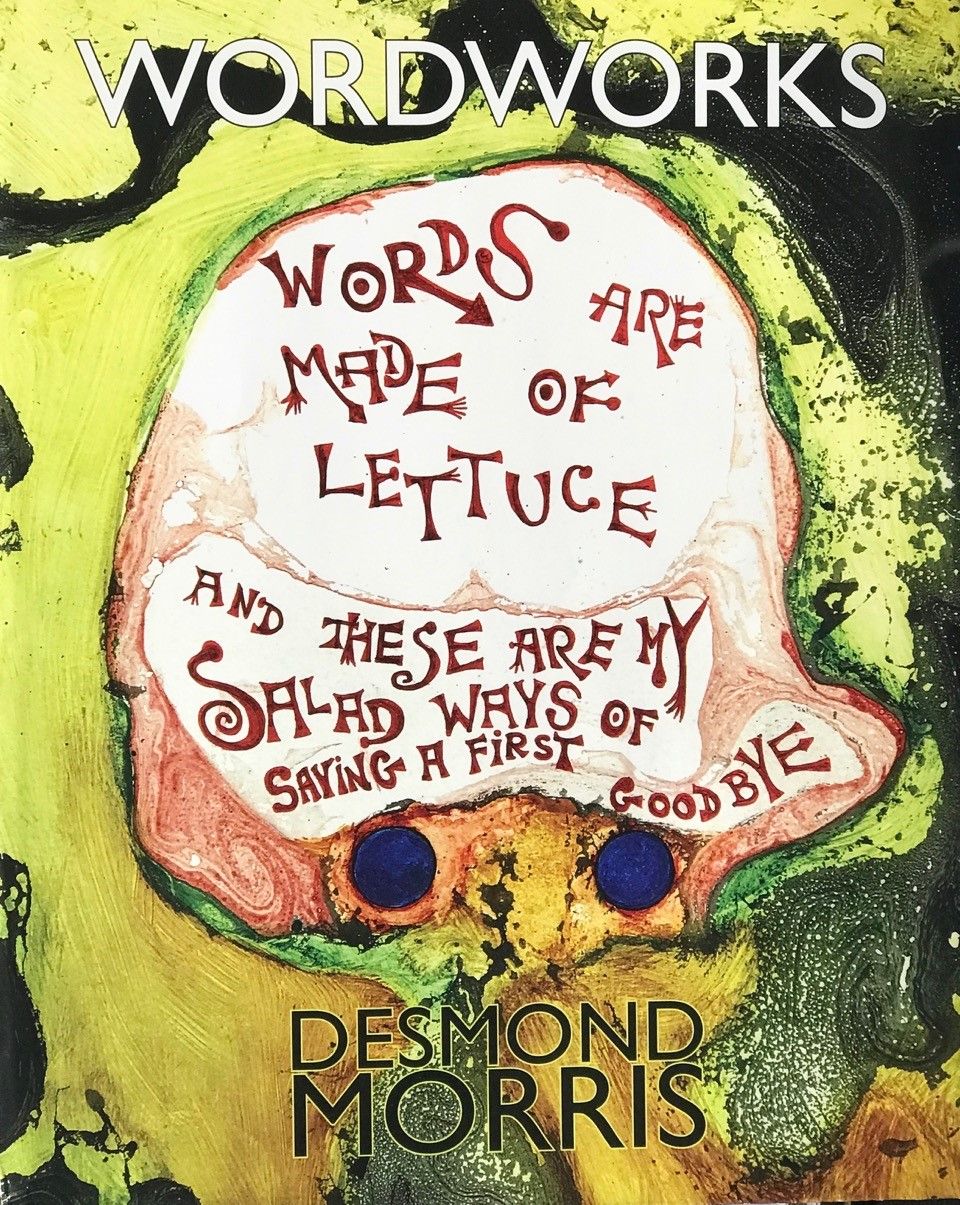 WORDWORKS
WORDS ARE
MADE OF
LETTUCE
AND THESE ARE MY
SALAD WAYS OF
SAYING A FIRST
GOODBYE
DESMOND
MORRIS